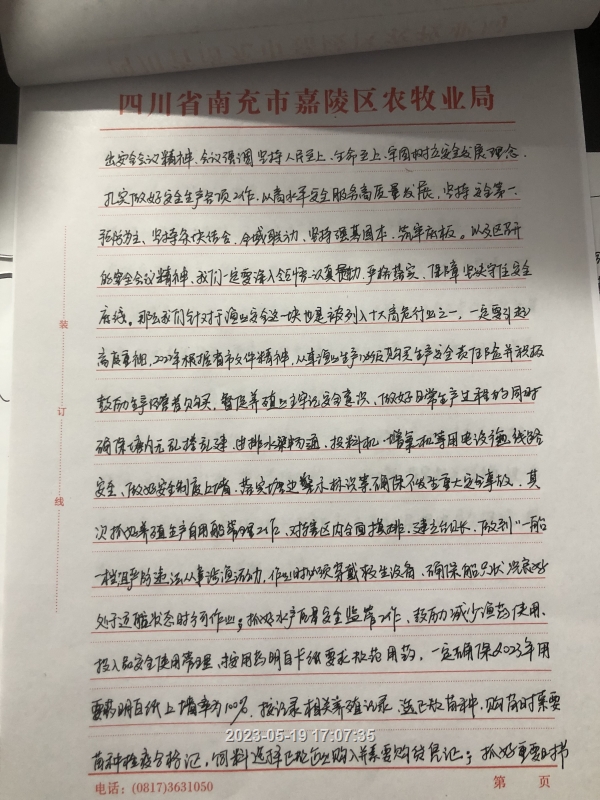 四川省南充市嘉陵区农牧业局
出安全会议精神。会议强调坚持人民至上、生命至上、牢固树立安全发展理念、
扎实做好安全生产各项工作,以高水平安全服务高质量发展,坚持安全第一、
预防为主、坚持条块结合、全域联动、坚持强基固本、筑牢底板。以及区召开
的安全会议精神,我们一定要深入领悟、认真贯彻、严格落实、保障坚决守住安全
底线。那么我们针对于渔业安全这一块也是被列入十大高危行业之一,一定要引起
高度重视,2022年根据省市文件精神,从事渔业生产必须购买生产安全责任险并积极
鼓励生产经营者购买,督促养殖业主牢记安全意识、做好日常生产过程的同时
确保塘内无乱搭乱建、进排水渠畅通、投料机、增氧机等用电设施线路
安全、做好安全制度上墙、落实塘边警示标识等确保不发生重大安全事故。其
次抓好养殖生产自用船管理工作、对辖区内全面摸排、建立台账、做到“一船
一档”严防违法从事涉渔活动、作业时必须穿戴救生设备、确保船只状况良好
处于适航状态时方可作业;抓好水产质量安全监管工作、鼓励减少渔药使用、
投入品安全使用管理、按用药明白卡纸要求规范用药,一定确保2023年用
药明白纸上墙率为100%。按记录相关养殖记录、选正规苗种、购苗时索要
苗种检疫合格证,饲料选择正规企业购入并索要购货凭证;抓好重要时节
装
订
线
2023-05-19 17:07:35
电话:(0817)3631050
第 页